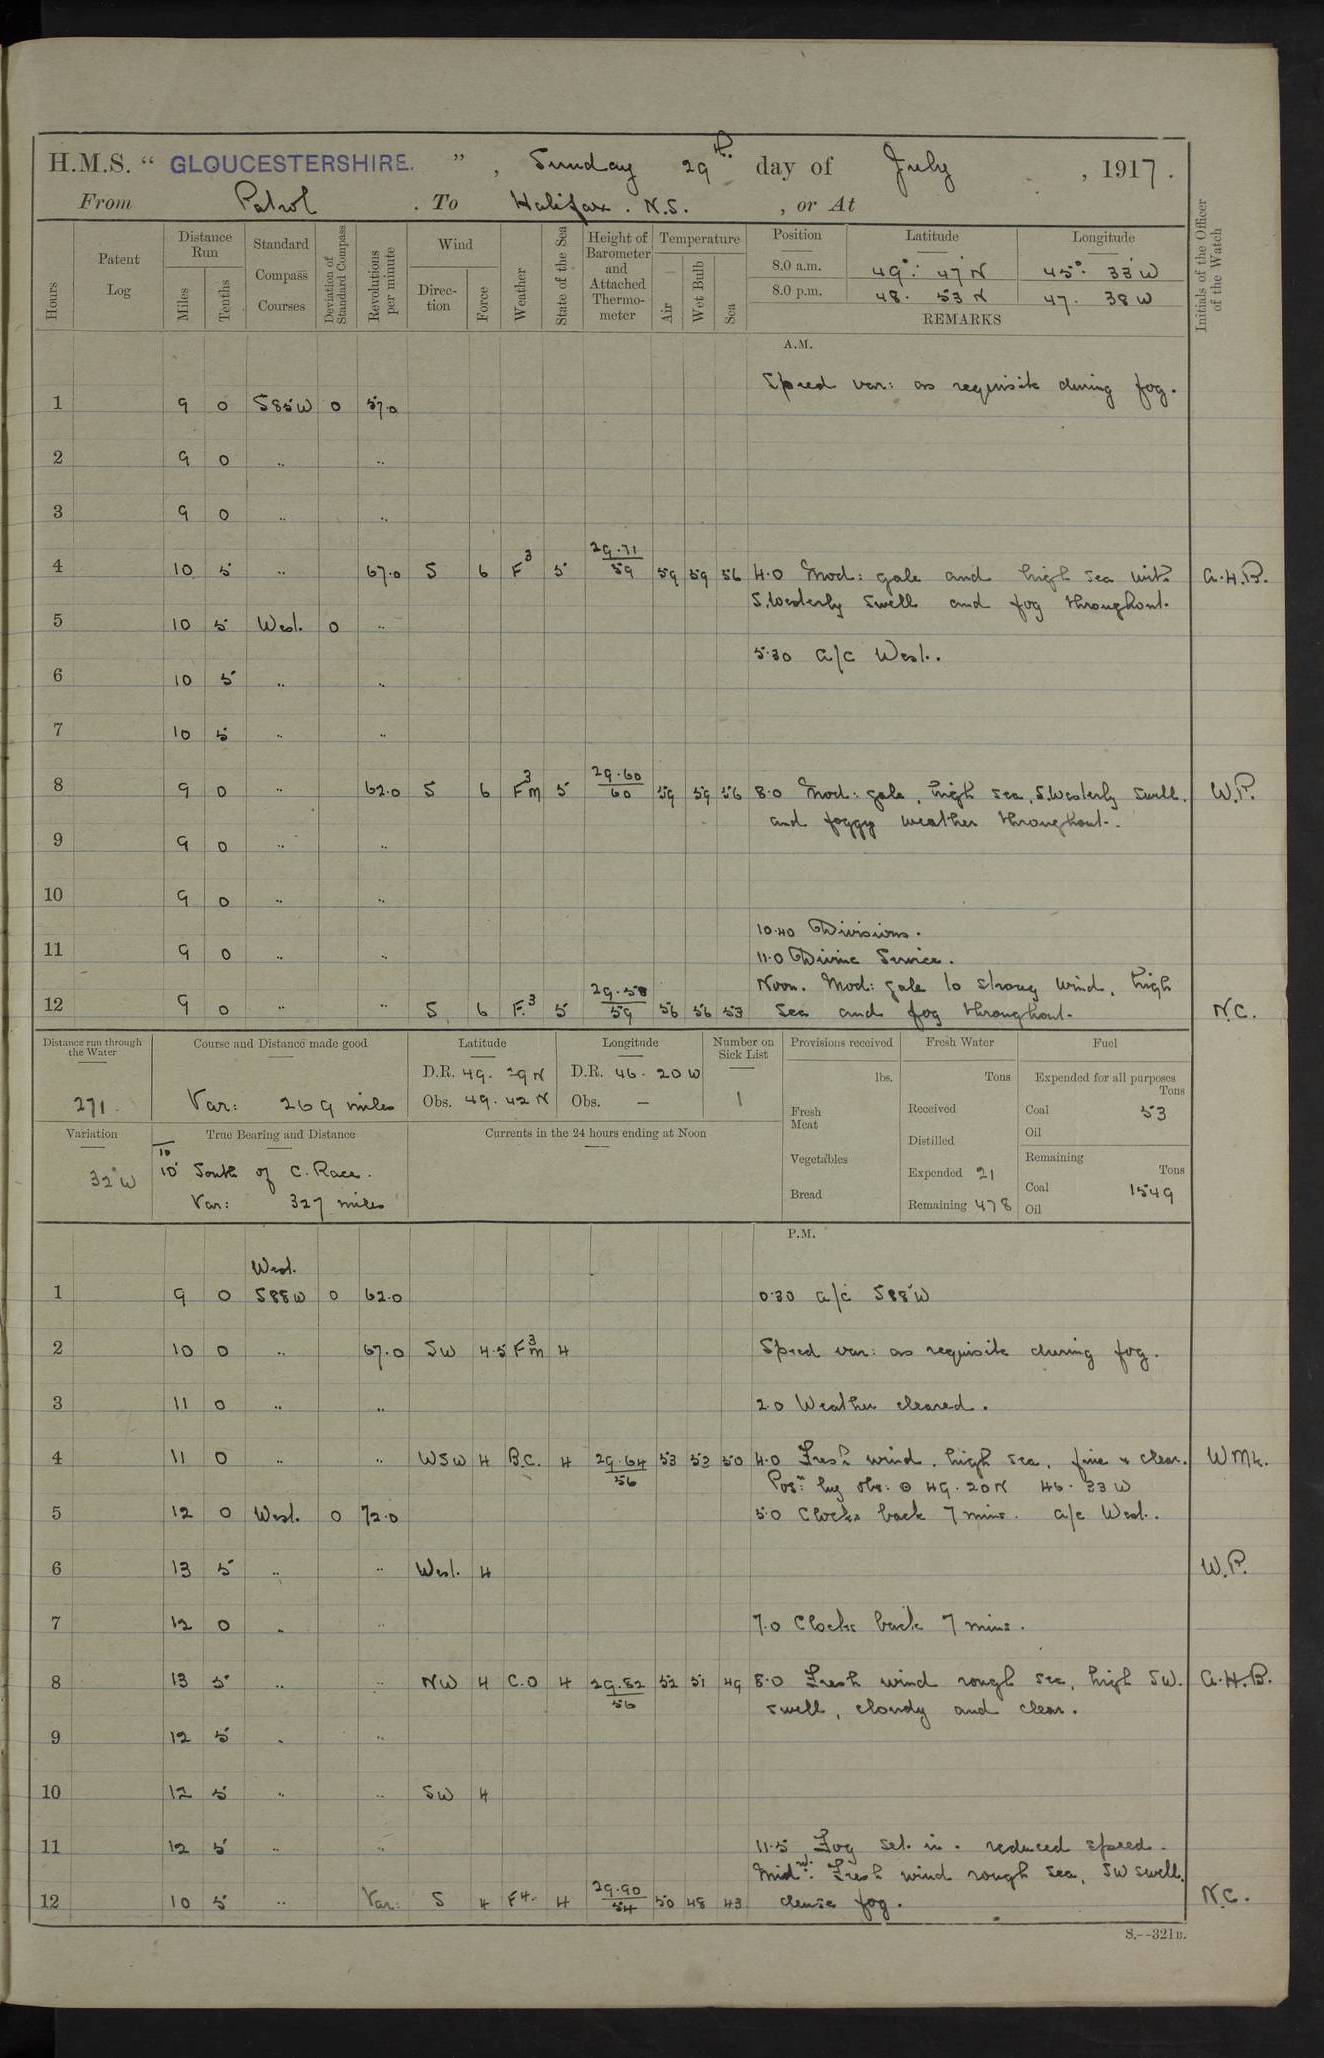 H.M.S. “ GLOUCESTERSHIRE. ” , Sunday 29th day of July , 1917.
From Patrol . To Halifax . N.S. , or At
Hours
Patent Log
Distance Run
Miles
Tenths
Standard Compass Courses
Deviation of Standard Compass
Revolutions per minute
Wind
Direction
Force
Weather
State of the Sea
Height of Barometer and Attached Thermometer
Temperature
Air
Wet Bulb
Sea
Position Latitude Longitude
8.0 a.m. 49° 47' N 45° 33' W
8.0 p.m. 48. 53 N 47. 38 W
REMARKS
Initials of the Officer of the Watch
A.M.
Speed var: as requisite during fog.
1 9 0 S85W 0 57.0
2 9 0 .. ..
3 9 0 .. ..
4 10 5 .. 67.0 S 6 F3 5 29.71/59 59 59 56 4.0 Mod: gale and high sea with A.H.B.
S.Westerly swell and fog throughout.
5 10 5 West. 0 ..
5.30 a/c West.
6 10 5 .. ..
7 10 5 .. ..
8 9 0 .. 62.0 S 6 F3m 5 29.60/60 59 59 56 8.0 Mod: gale, high sea, S.Westerly swell. W.P.
and foggy weather throughout.
9 9 0 .. ..
10 9 0 .. ..
10.40 Divisions.
11 9 0 .. .. 11.0 Divine Service.
Noon. Mod: gale to strong wind, high
12 9 0 .. .. S 6 F.3 5 29.58/59 56 56 53 sea and fog throughout. N.C.
Distance run through the Water
271.
Course and Distance made good
Var: 269 miles
Latitude
D.R. 49. 29 N
Obs. 49. 42 N
Longitude
D.R. 46. 20 W
Obs. —
Number on Sick List
1
Provisions received
lbs.
Fresh Meat
Vegetables
Bread
Fresh Water
Tons
Received
Distilled
Expended 21
Remaining 478
Fuel
Expended for all purposes
Tons
Coal 53
Oil
Remaining
Tons
Coal 1549
Oil
Variation
32° W
True Bearing and Distance
10
10' South of C. Race.
Var: 327 miles
Currents in the 24 hours ending at Noon
P.M.
West.
1 9 0 S88W 0 62.0 0.30 a/c S88°W
2 10 0 .. 67.0 SW 4.5 F3m 4 Speed var: as requisite during fog.
3 11 0 .. .. 2.0 Weather cleared.
4 11 0 .. .. WSW 4 B.C. 4 29.64/56 53 53 50 4.0 Fresh wind, high sea, fine & clear. WMk.
Posn by obs. ⊙ 49.20N 46.33W
5 12 0 West. 0 72.0 5.0 Clocks back 7 mins. a/c West.
6 13 5 .. .. West. 4 W.P.
7 12 0 .. .. 7.0 Clocks back 7 mins.
8 13 5 .. .. NW 4 C.O 4 29.82/56 52 51 49 8.0 Fresh wind rough sea, high SW. A.H.B.
swell, cloudy and clear.
9 12 5 .. ..
10 12 5 .. .. SW 4
11 12 5 .. .. 11.5 Fog set in. reduced speed.
Midnt: Fresh wind rough sea, SW swell,
12 10 5 .. Var: S 4 F4. 4 29.90/54 50 48 43 dense fog. N.C.
S.--321B.